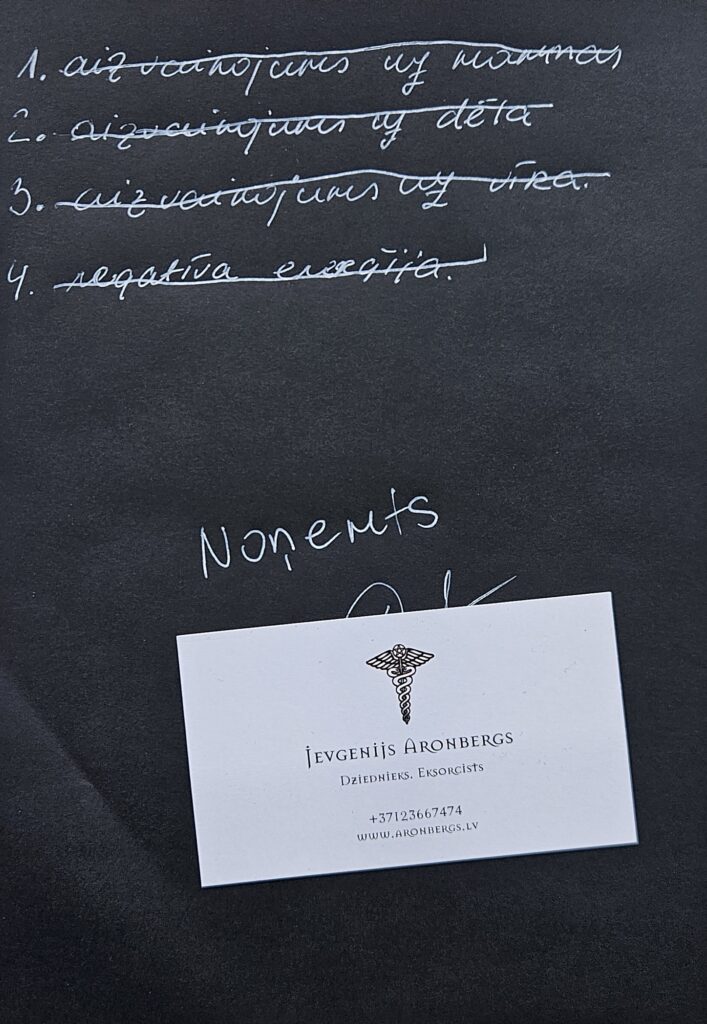 1. aizvainojums uz mammas
2. aizvainojums uz dēta
3. aizvainojums uz vīra.
4. negatīva enerģija.
Noņemts
Jevgenijs Aronbergs
Dziednieks. Eksorcists
+37123667474
www.aronbergs.lv